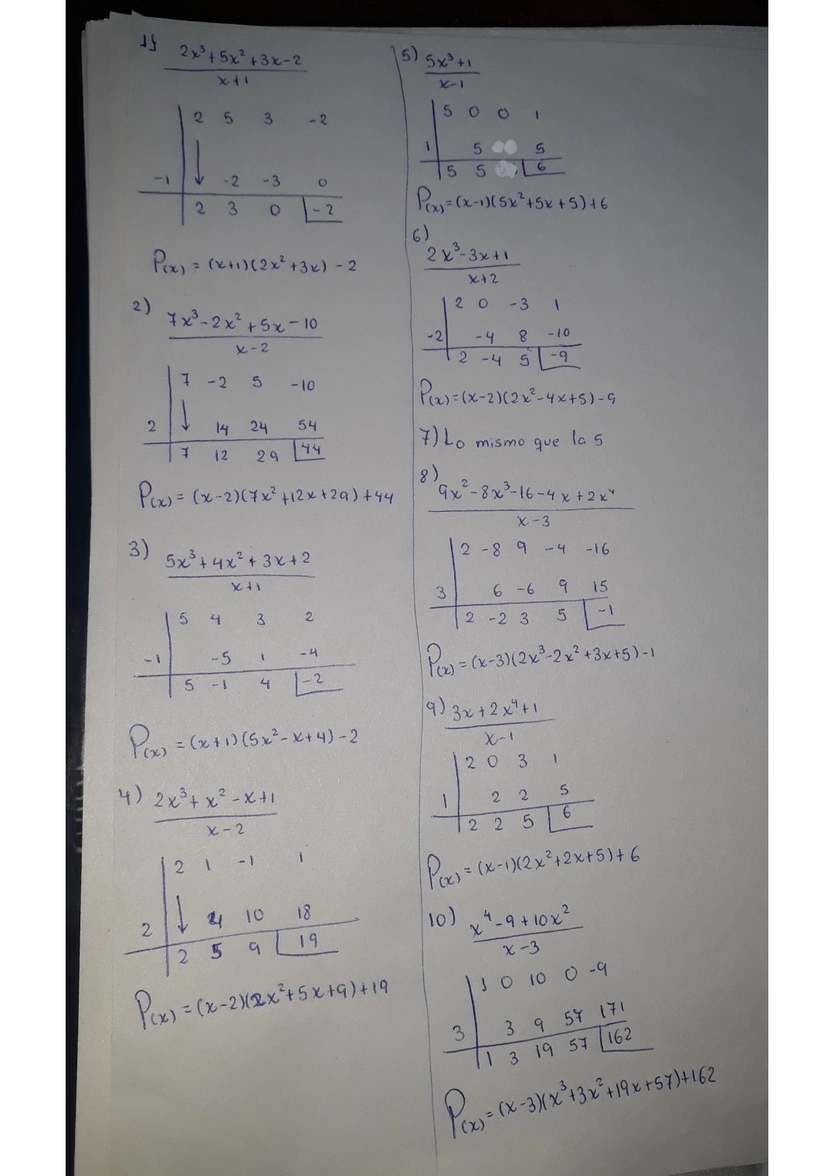 1) 2x³+5x²+3x-2
x+1
2 5 3 -2
-1 -2 -3 0
2 3 0 -2
P(x) = (x+1)(2x²+3x) - 2
2) 7x³-2x²+5x-10
x-2
7 -2 5 -10
2 14 24 54
7 12 29 44
P(x) = (x-2)(7x²+12x+29)+44
3) 5x³+4x²+3x+2
x+1
5 4 3 2
-1 -5 1 -4
5 -1 4 -2
P(x) = (x+1)(5x²-x+4)-2
4) 2x³+x²-x+1
x-2
2 1 -1 1
2 4 10 18
2 5 9 19
P(x) = (x-2)(2x²+5x+9)+19
5) 5x³+1
x-1
5 0 0 1
1 5 5
5 5 6
P(x)=(x-1)(5x²+5x+5)+6
6)
2x³-3x+1
x+2
2 0 -3 1
-2 -4 8 -10
2 -4 5 -9
P(x)=(x-2)(2x²-4x+5)-9
7) Lo mismo que la 5
8)
9x²-8x³-16-4x+2x⁴
x-3
2 -8 9 -4 -16
3 6 -6 9 15
2 -2 3 5 -1
P(x)=(x-3)(2x³-2x²+3x+5)-1
9) 3x+2x⁴+1
x-1
2 0 3 1
1 2 2 5
2 2 5 6
P(x)=(x-1)(2x²+2x+5)+6
10) x⁴-9+10x²
x-3
1 0 10 0 -9
3 3 9 57 171
1 3 19 57 162
P(x)=(x-3)(x³+3x²+19x+57)+162